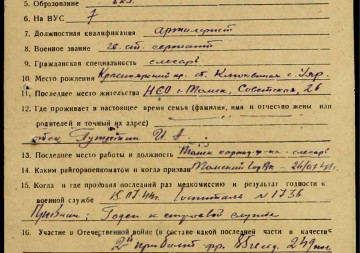 5. Образование 3 кл.
6. На ВУС 7
7. Должностная квалификация артиллерист
8. Военное звание гв. ст. сержант
9. Гражданская специальность слесарь
10. Место рождения Красноярский кр.
11. Последнее место жительства НСО г. Томск, Советская, 26
12. Где проживает в настоящее время семья (фамилия, имя и отчество жены или
родителей и точный их адрес)
отец И. А.
13. Последнее место работы и должность Томск слесарь
14. Каким райгорвоенкоматом и когда призван Томский
15. Когда и где проходил последний раз медкомиссию и результат годности к
военной службе 15.07.44г. госпиталь № 1736
Признан: Годен к строевой службе
16. Участие в Отечественной войне (в составе какой последней части и в качестве
2й прибалт. фр.